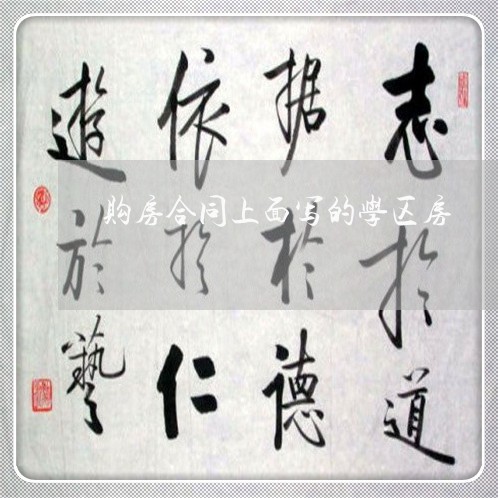 志於道
据於德
依於仁
遊於藝
购房合同上面写的學区房